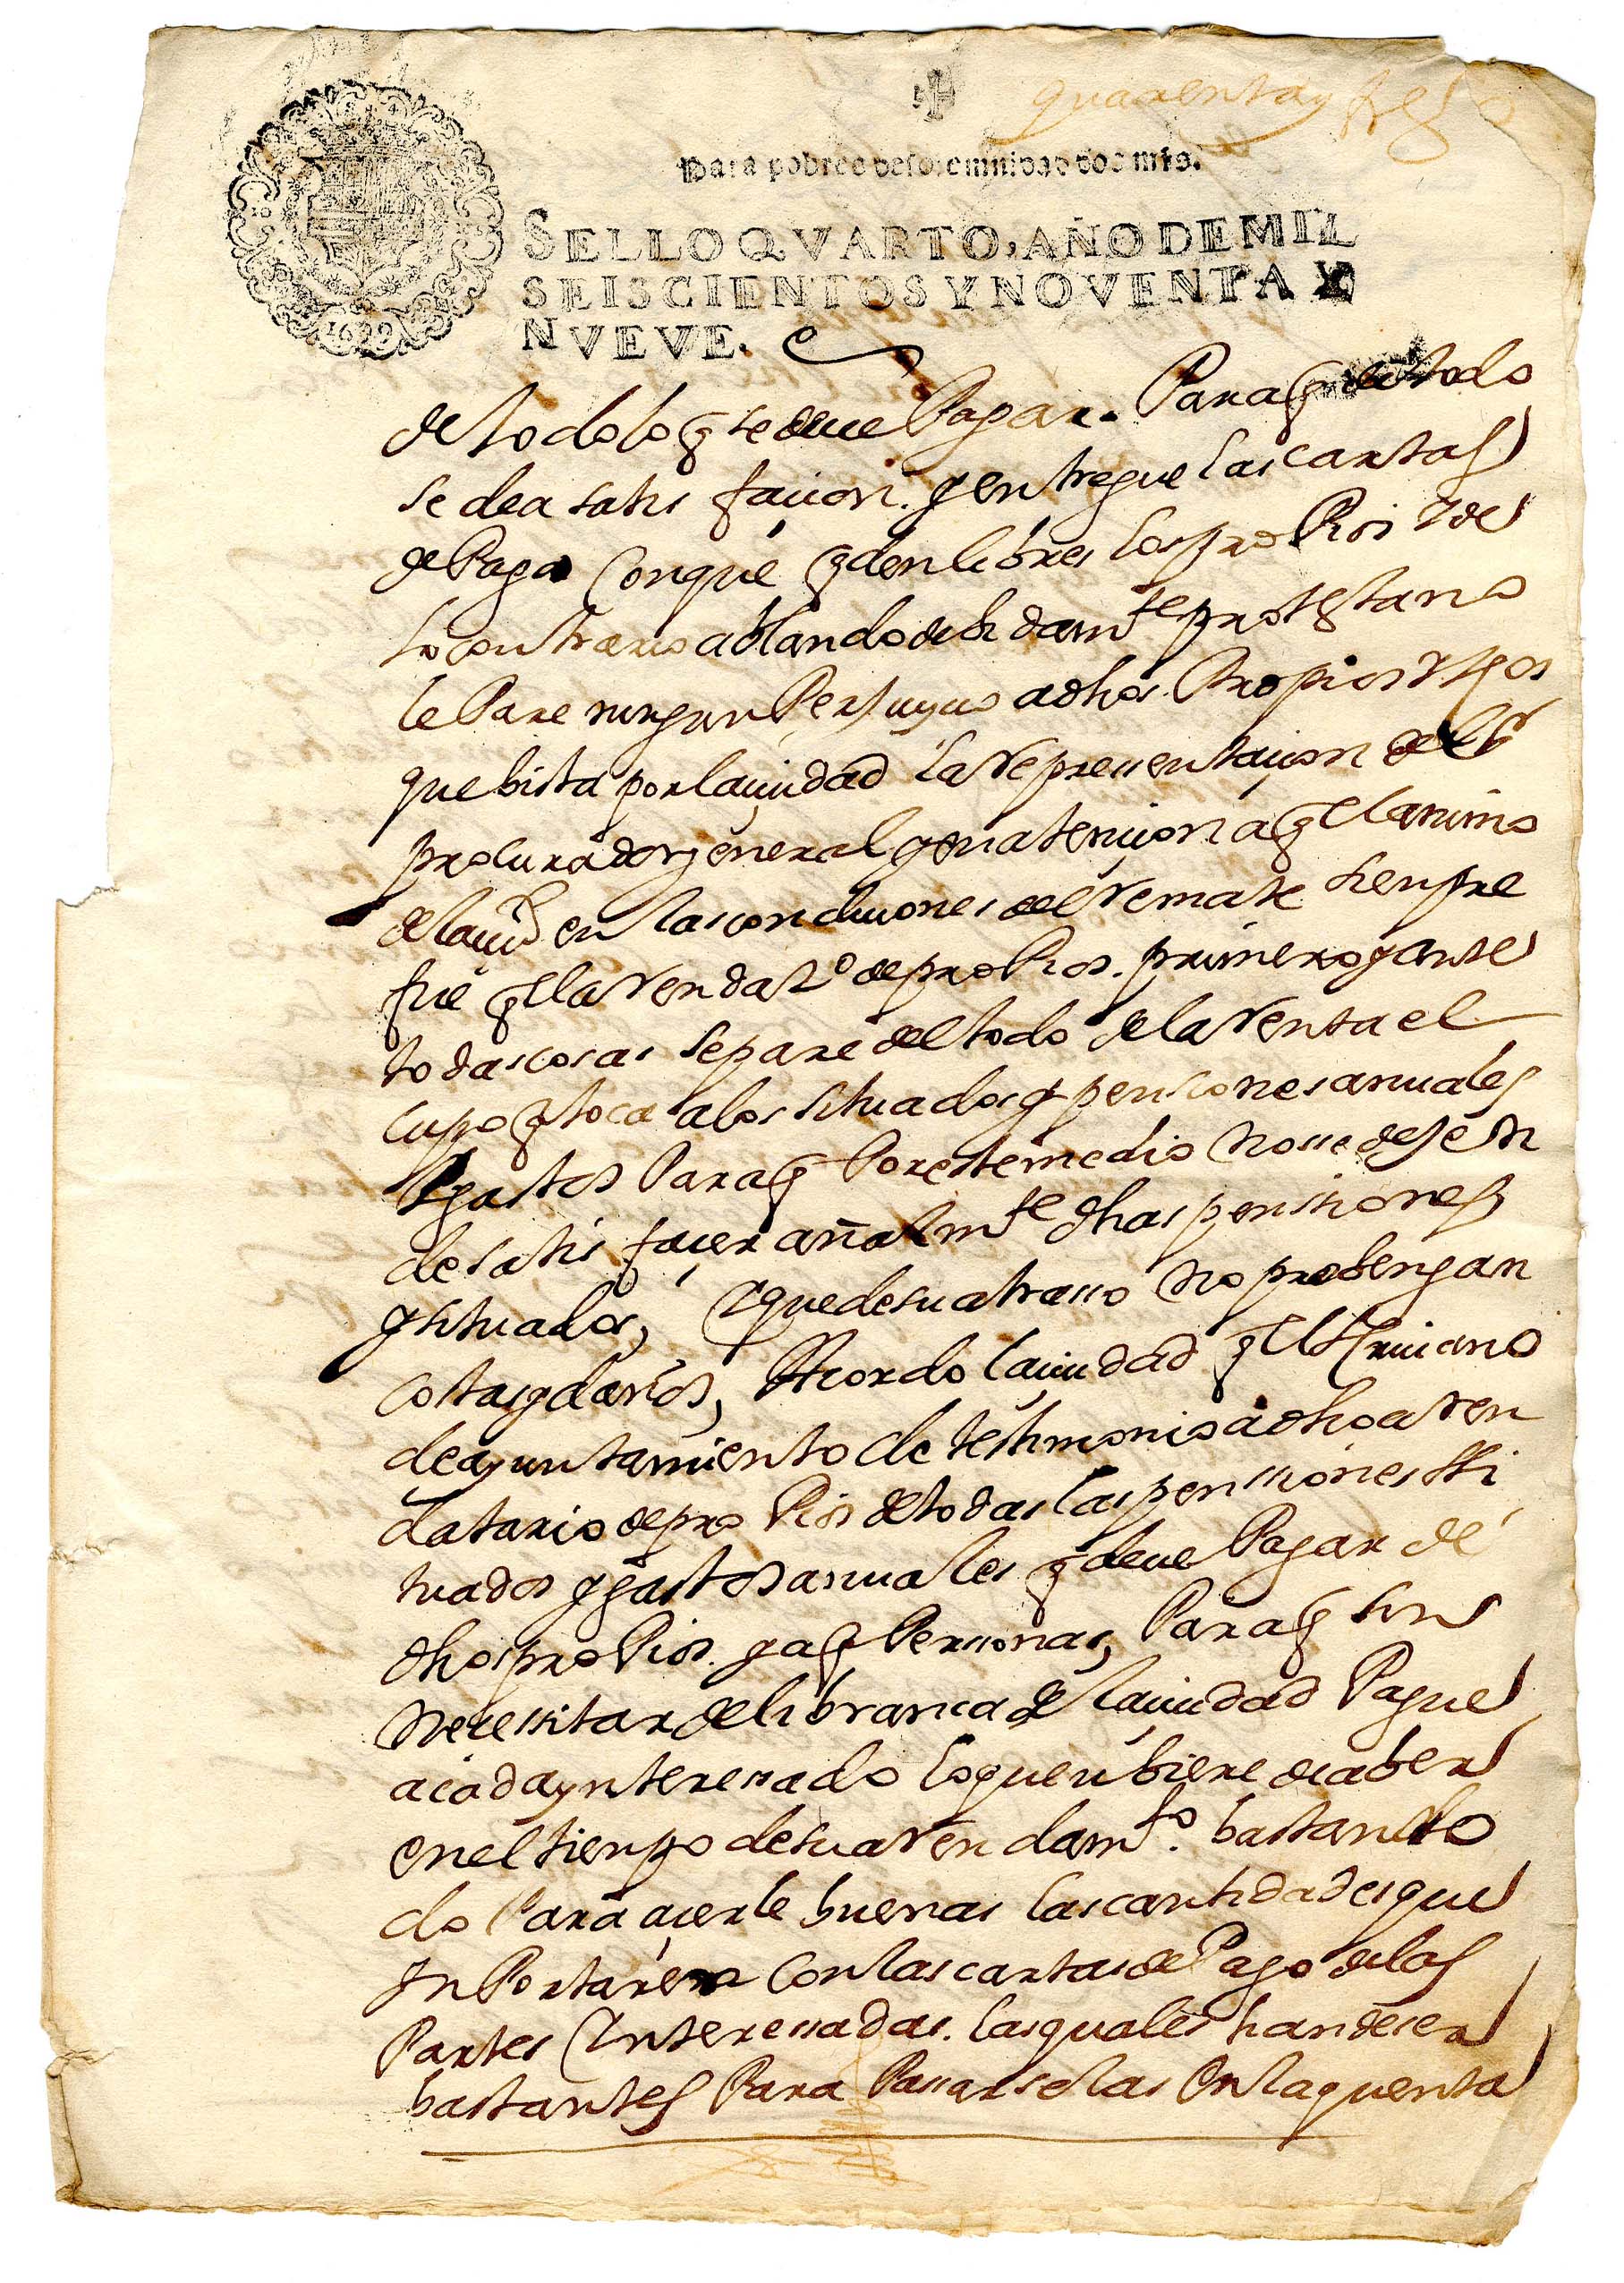 quarenta y tres
Para pobres de solemnidad dos mrs.
SELLO QVARTO, AÑO DE MIL
SEISCIENTOS Y NOVENTA Y
NVEVE.
1699
de todo lo q se deue Pagar. Para q de todo
se dea satisfacion. y entregue las cartas
de Pago Con que qden libres los proPios Y de
lo contrario ablando debidamte protestano
le Pare ningun Perjuyuio a dhos Propios
que bista por la ciudad la Representacion del Sr
procurador general y en atencion a q el animo
de la ciud en las condiciones del Remate sienpre
fue q el aRendaro de proPios. primero y ante
todas cosas separe del todo de la Renta el
cupo q toca a los situados y pensiones anuales
y gastos Para q Por este medio No se dejen
de satisfacer añalmte dhas pensiones
y situados, Y que de su atrasso No probengan
costas y daños, Acordo la ciudad q el esscriuano
de ayuntamiento de testimonio a dho aRen
datario de proPios de todas las penssiones Sti
tuados y gastos anuales q deue Pagar de
dhos proPios. y a q Perssonas, Para q sin
Necessitar de libranca de la ciudad Pague
a cada ynteresado lo que ubiere de aber
en el tienpo de su aRendamto. bastando
do Para acerle buenas las cantidades que
ynPortaren Con las cartas de Pago de las
Partes Ynteressadas. las quales han de ser
bastantes Para Passarselas En la quenta